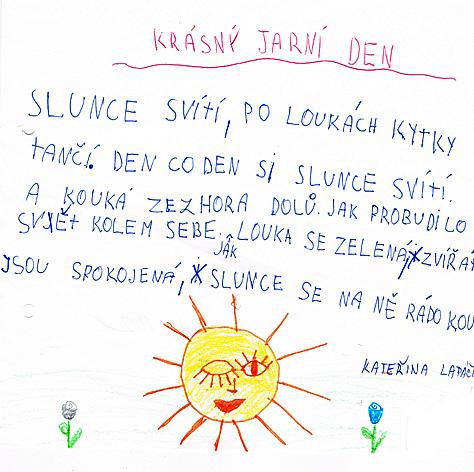 KRÁSNÝ JARNÍ DEN
SLUNCE SVÍTÍ, PO LOUKÁCH KYTKY
TANČÍ. DEN CO DEN SI SLUNCE SVÍTÍ.
A KOUKÁ ZEZHORA DOLŮ. JAK PROBUDILO
SVĚT KOLEM SEBE. LOUKA SE ZELENÁ, ZVÍŘA
JSOU SPOKOJENÁ, JAK SLUNCE SE NA NĚ RÁDO KOU
KATEŘINA